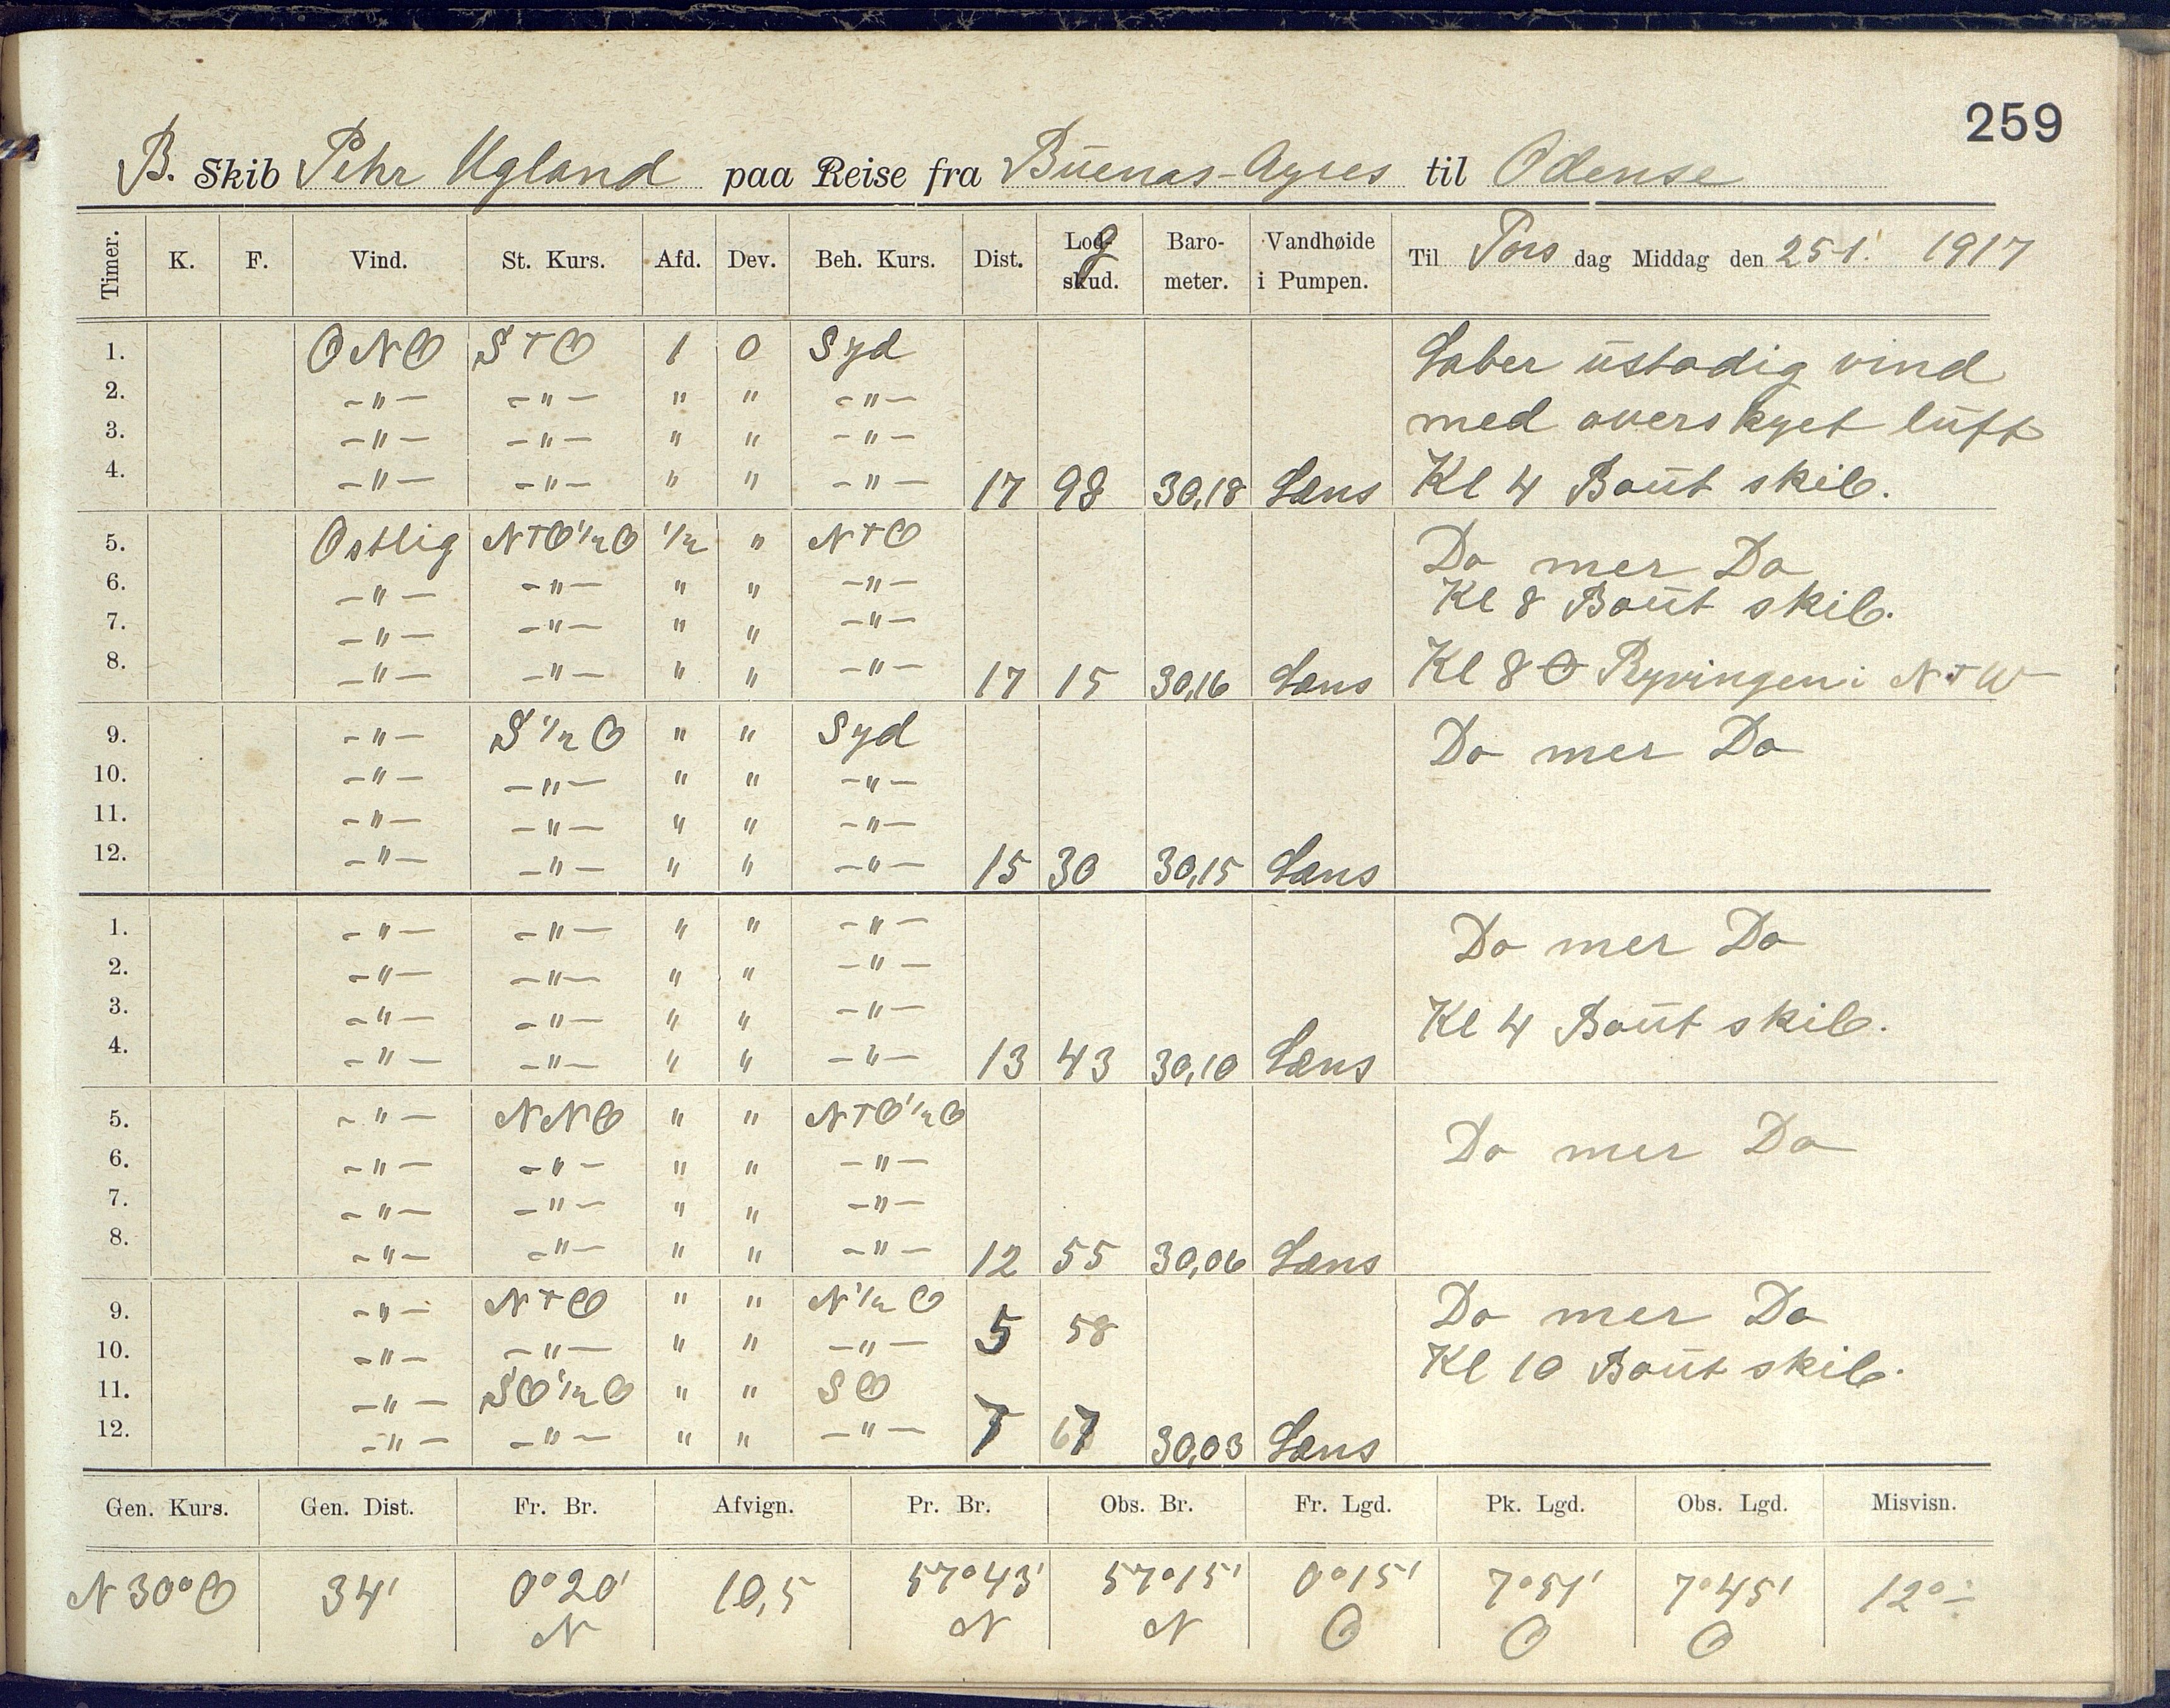 259
B. Skib Pehr Ugland paa Reise fra Buenas-Ayres til Odense
Timer. K. F. Vind. St. Kurs. Afd. Dev. Beh. Kurs. Dist. Log- skud. Baro- meter. Vandhøide i Pumpen. Til Tors dag Middag den 25-1. 1917
1. ONO STO 1 0 Syd Laber ustadig vind
2. -"- -"- " " -"- med overskyet luft
3. -"- -"- " " -"-
4. -"- -"- " " -"- 17 98 30,18 Læns Kl 4 Baut skib.
5. Ostlig NTO½O ½ " NTO Do mer Do
6. -"- -"- " " -"- Kl 8 Baut skib.
7. -"- -"- " " -"-
8. -"- -"- " " -"- 17 15 30,16 Læns Kl 8 O Ryvingen i NTW
9. -"- S½O " " Syd Do mer Do
10. -"- -"- " " -"-
11. -"- -"- " " -"-
12. -"- -"- " " -"- 15 30 30,15 Læns
1. -"- -"- " " -"- Do mer Do
2. -"- -"- " " -"-
3. -"- -"- " " -"- Kl 4 Baut skib.
4. -"- -"- " " -"- 13 43 30,10 Læns
5. -"- NNO " " NTO½O Do mer Do
6. -"- -"- " " -"-
7. -"- -"- " " -"-
8. -"- -"- " " -"- 12 55 30,06 Læns
9. -"- NTO " " N½O 5 58 Do mer Do
10. -"- -"- " " -"- Kl 10 Baut skib.
11. -"- SO½O " " SO
12. -"- -"- " " -"- 7 67 30,03 Læns
Gen. Kurs. Gen. Dist. Fr. Br. Afvign. Pr. Br. Obs. Br. Fr. Lgd. Pk. Lgd. Obs. Lgd. Misvisn.
N 30° O 34' 0° 20' 10,5 57° 43' 57° 15' 0° 15' 7° 51' 7° 45' 12° -
N N N O O O